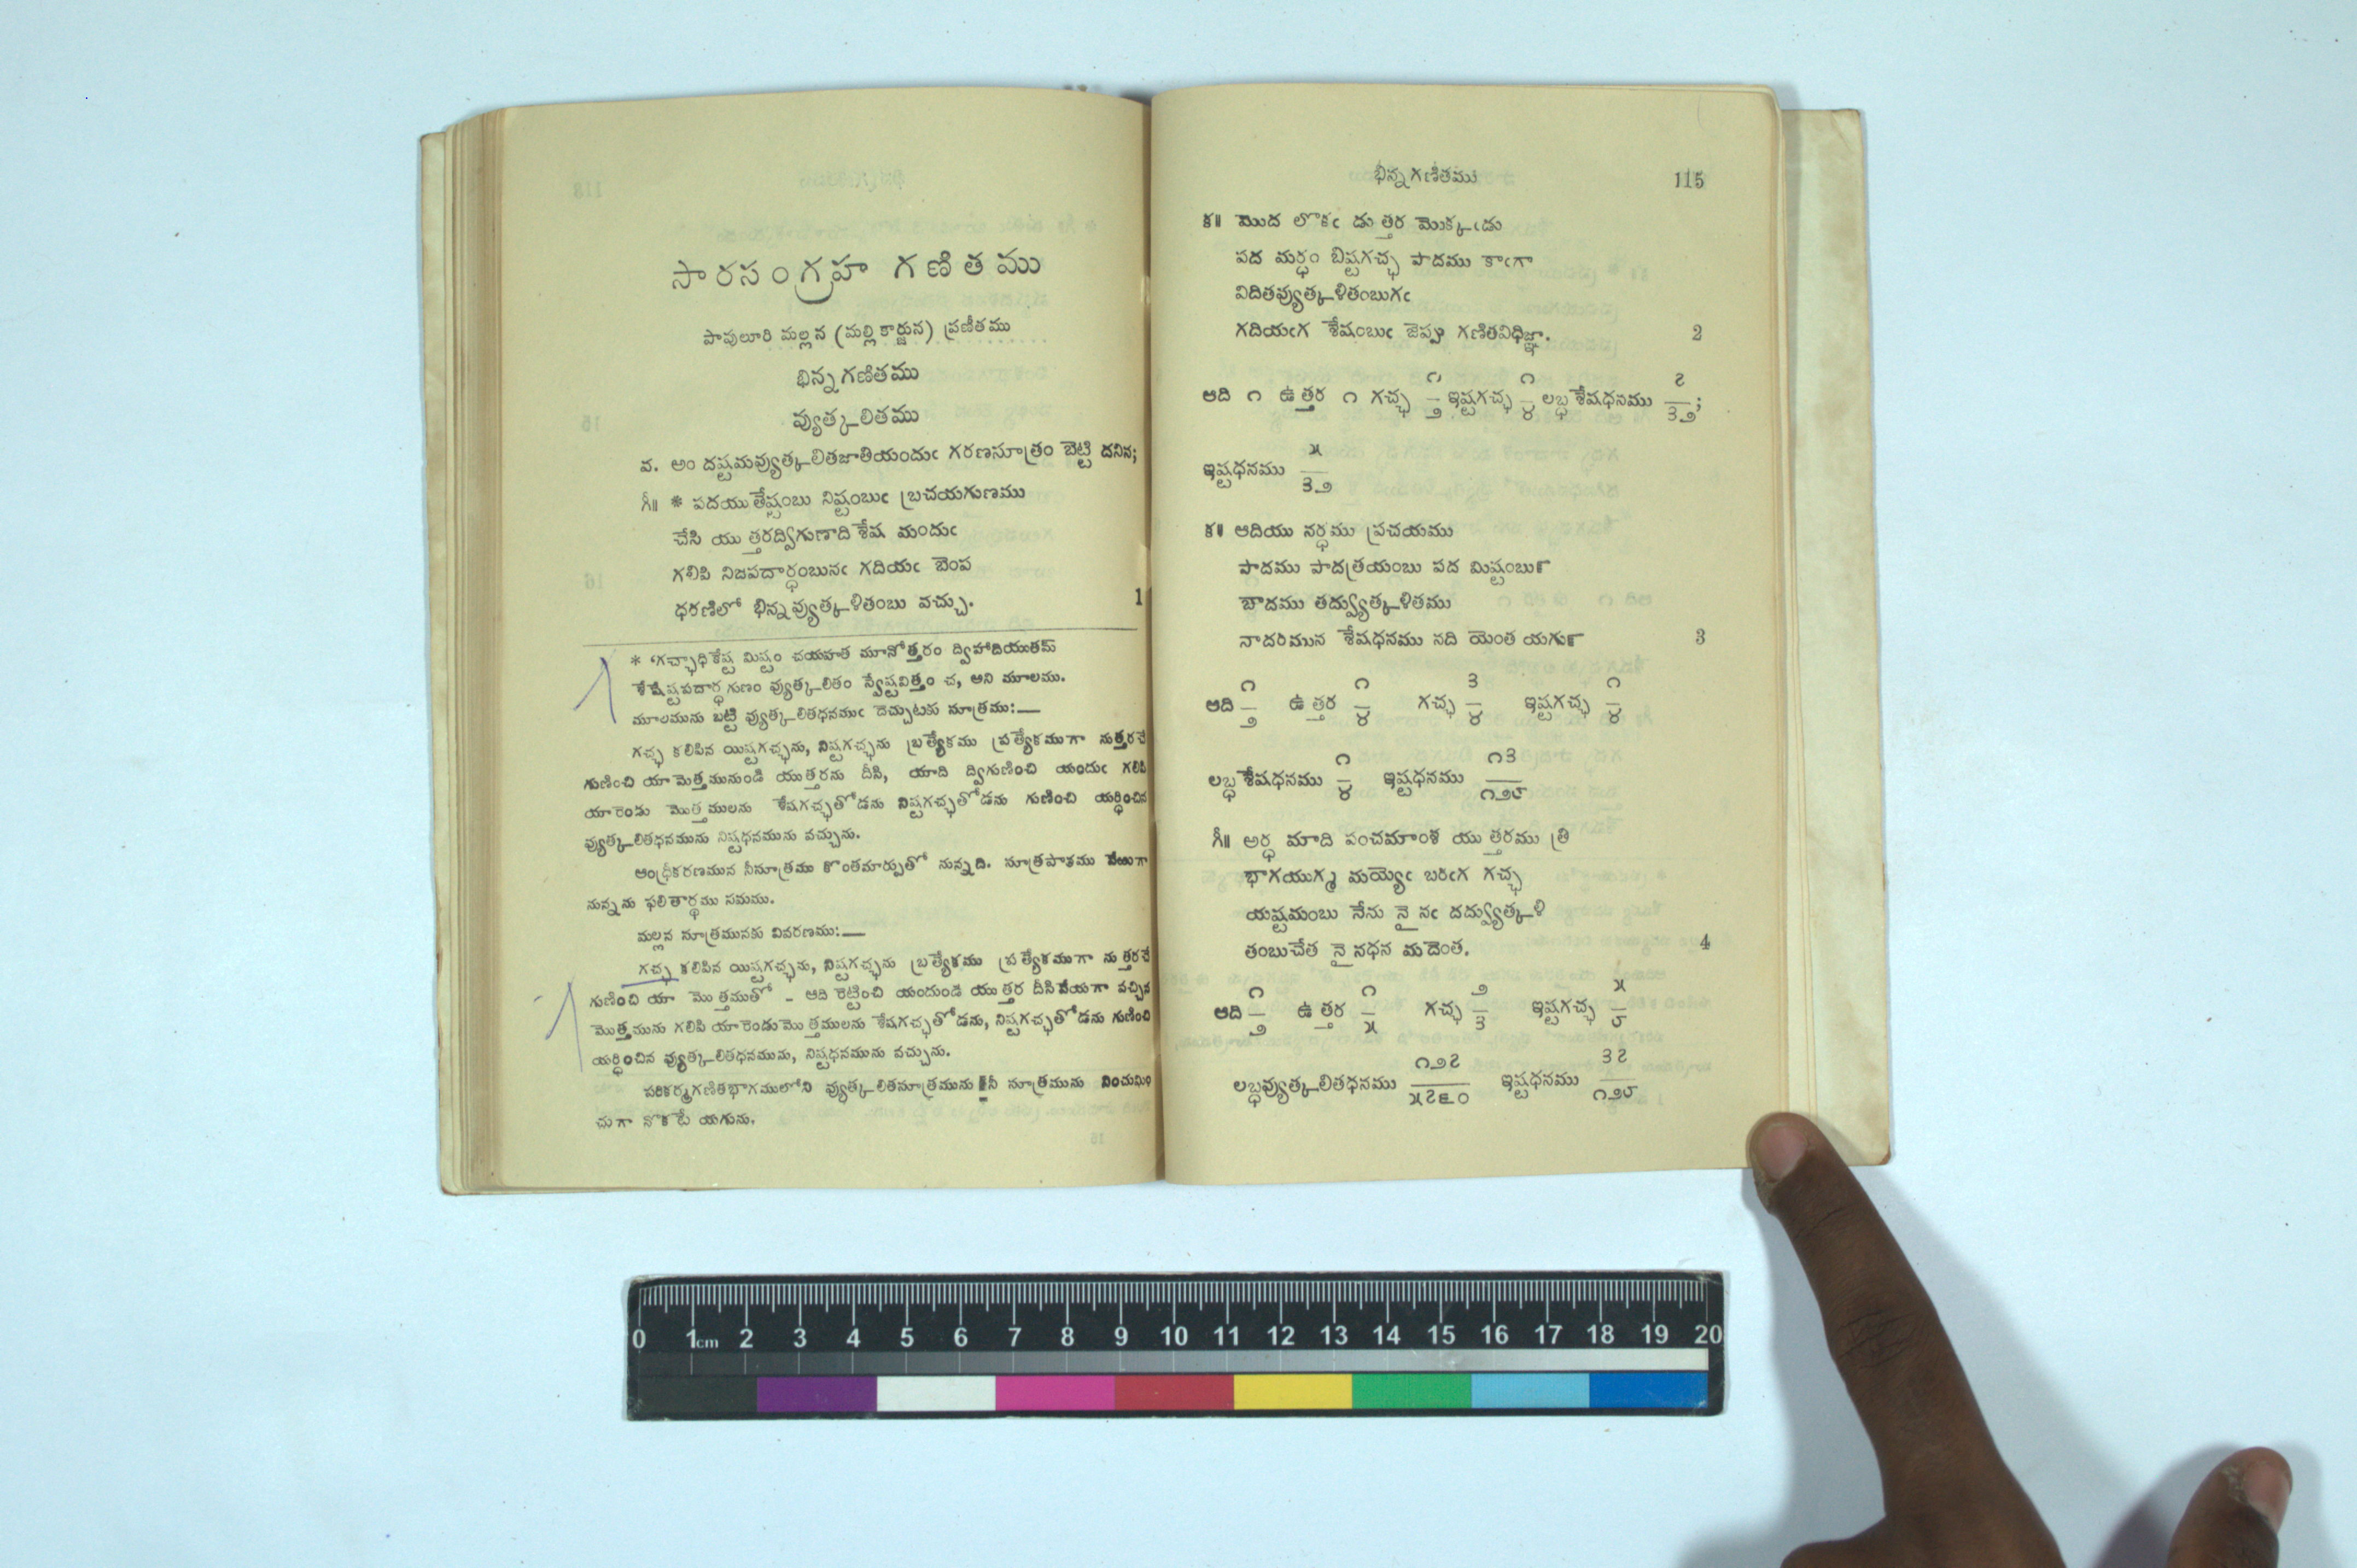 సారసంగ్రహ గణితము
పావులూరి మల్లన (మల్లికార్జున) ప్రణీతము
భిన్నగణితము
వ్యుత్కలితము
వ. అం దష్టమవ్యుత్కలితజాతియందుఁ గరణసూత్రం బెట్టి దనిన;
గీ॥ * పదయుతేష్టంబు నిష్టంబుఁ బ్రచయగుణము
చేసి యుత్తరద్విగుణాది శేష మందుఁ
గలిపి నిజపదార్ధంబునఁ గదియఁ బెంప
ధరణిలో భిన్నవ్యుత్కళితంబు వచ్చు. 1
* ‘గచ్ఛాధికేష్ట మిష్టం చయహత మూనోత్తరం ద్విహాదియుతమ్
శేషేష్టపదార్ధగుణం వ్యుత్కలితం స్వేష్టవిత్తం చ, అని మూలము.
మూలమును బట్టి వ్యుత్కలితధనముఁ దెచ్చుటకు సూత్రము:—
గచ్ఛ కలిపిన యిష్టగచ్ఛను, నిష్టగచ్ఛను బ్రత్యేకము ప్రత్యేకముగా నుత్తరచే
గుణించి యా మొత్తమునుండి యుత్తరను దీసి, యాది ద్విగుణించి యందుఁ గలిపి
యా రెండు మొత్తములను శేషగచ్ఛతోడను నిష్టగచ్ఛతోడను గుణించి యర్ధించిన
వ్యుత్కలితధనమును నిష్టధనమును వచ్చును.
ఆంధ్రీకరణమున నీసూత్రము కొంతమార్పుతో నున్నది. సూత్రపాఠము వేఱుగా
నున్నను ఫలితార్థము సమము.
మల్లన సూత్రమునకు వివరణము:—
గచ్ఛ కలిపిన యిష్టగచ్ఛను, నిష్టగచ్ఛను బ్రత్యేకము ప్రత్యేకముగా నుత్తరచే
గుణించి యా మొత్తముతో - ఆది రెట్టించి యందుండి యుత్తర దీసివేయగా వచ్చిన
మొత్తమును గలిపి యా రెండుమొత్తములను శేషగచ్ఛతోడను, నిష్టగచ్ఛతోడను గుణించి
యర్ధించిన వ్యుత్కలితధనమును, నిష్టధనమును వచ్చును.
పరికర్మగణితభాగములోని వ్యుత్కలితసూత్రమును నీ సూత్రమును నించుమిం
చుగా నొకటే యగును.
భిన్నగణితము 115
క॥ మొద లొకఁ డుత్తర మొక్కఁడు
పద మర్ధం బిష్టగచ్ఛ పాదము కాఁగా
విదితవ్యుత్కళితంబుగఁ
గదియఁగ శేషంబుఁ జెప్పు గణితవిధిజ్ఞా. 2
ఆది ౧ ఉత్తర ౧ గచ్ఛ ౧/౨ ఇష్టగచ్ఛ ౧/౪ లబ్ధశేషధనము ౭/౩౨;
ఇష్టధనము ౫/౩౨
క॥ ఆదియు నర్ధము ప్రచయము
పాదము పాదత్రయంబు పద మిష్టంబుౝ
బాదము తద్వ్యుత్కళితము
నాదరిమున శేషధనము నది యెంత యగుౝ 3
ఆది ౧/౨ ఉత్తర ౧/౪ గచ్ఛ ౩/౪ ఇష్టగచ్ఛ ౧/౪
లబ్ధ శేషధనము ౧/౪ ఇష్టధనము ౧౩/౧౨౮
గీ॥ అర్ధ మాది పంచమాంశ యుత్తరము త్రి
భాగయుగ్మ మయ్యెఁ బరఁగ గచ్ఛ
యష్టమంబు నేను నైనఁ దద్వ్యుత్కళి
తంబుచేత నైనధన మదెంత. 4
ఆది ౧/౨ ఉత్తర ౧/౫ గచ్ఛ ౨/౩ ఇష్టగచ్ఛ ౫/౮
లబ్ధవ్యుత్కలితధనము ౧౨౭/౫౭౬౦ ఇష్టధనము ౩౭/౧౨౮
0 1cm 2 3 4 5 6 7 8 9 10 11 12 13 14 15 16 17 18 19 20